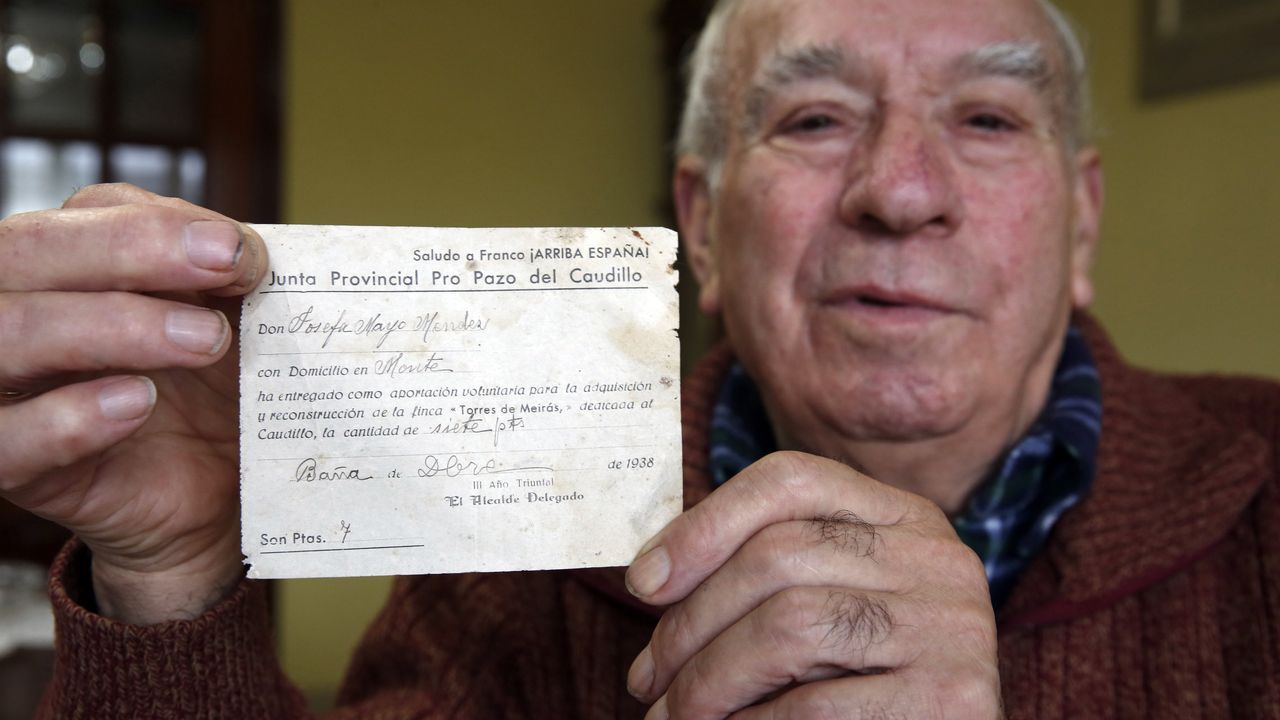 Saludo a Franco ¡ARRIBA ESPAÑA!
Junta Provincial Pro Pazo del Caudillo
Don Josefa Mayo Mendez
con Domicilio en Monte
ha entregado como aportación voluntaria para la adquisición
y reconstrucción de la finca «Torres de Meirás,» dedicada al
Caudillo, la cantidad de siete pts
Baña de Dbre de 1938
III Año Triunfal
El Alcalde Delegado
Son Ptas. 7